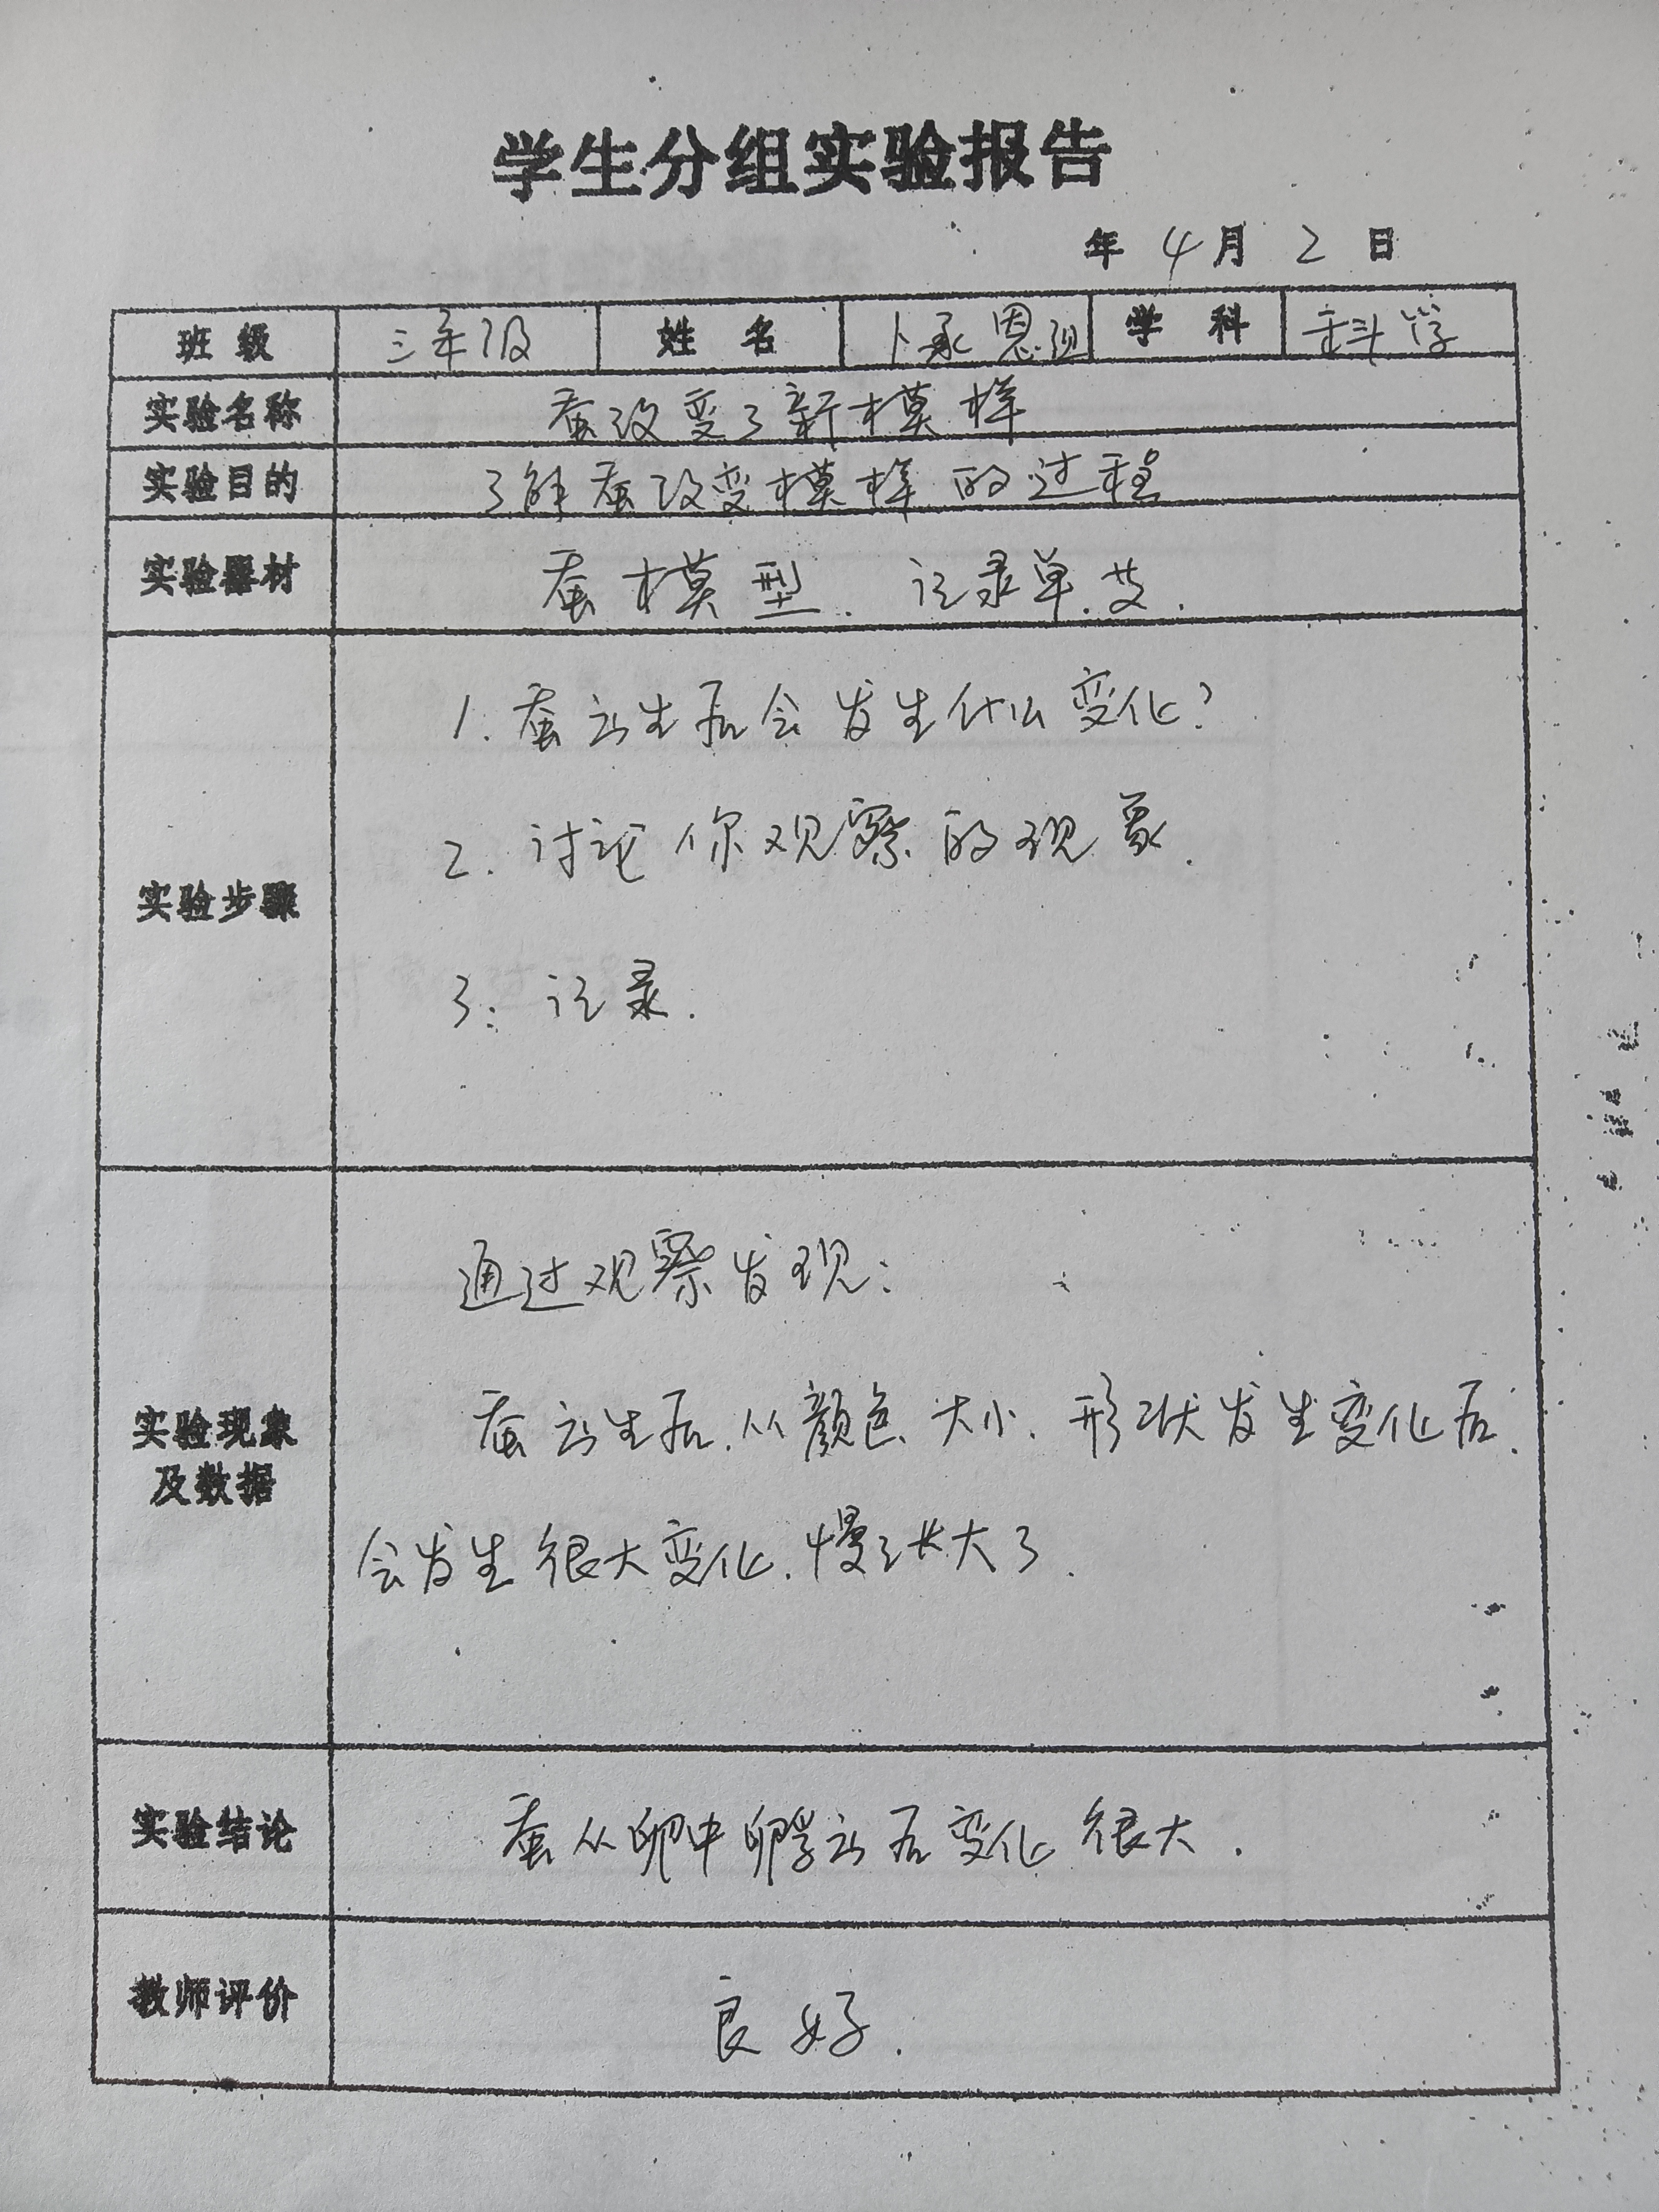 学生分组实验报告
年 4 月 2 日
班 级 三年级 姓 名 卜承恩组 学 科 科学
实验名称 蚕改变了新模样
实验目的 了解蚕改变模样的过程
实验器材 蚕模型、记录单、
实验步骤
1. 蚕出生后会发生什么变化?
2. 讨论你观察的现象.
3. 记录.
实验现象
及数据
通过观察发现:
蚕出生后,从颜色、大小、形状发生变化后,
会发生很大变化,慢慢长大了.
实验结论 蚕从卵中孵出后变化很大.
教师评价 良好.